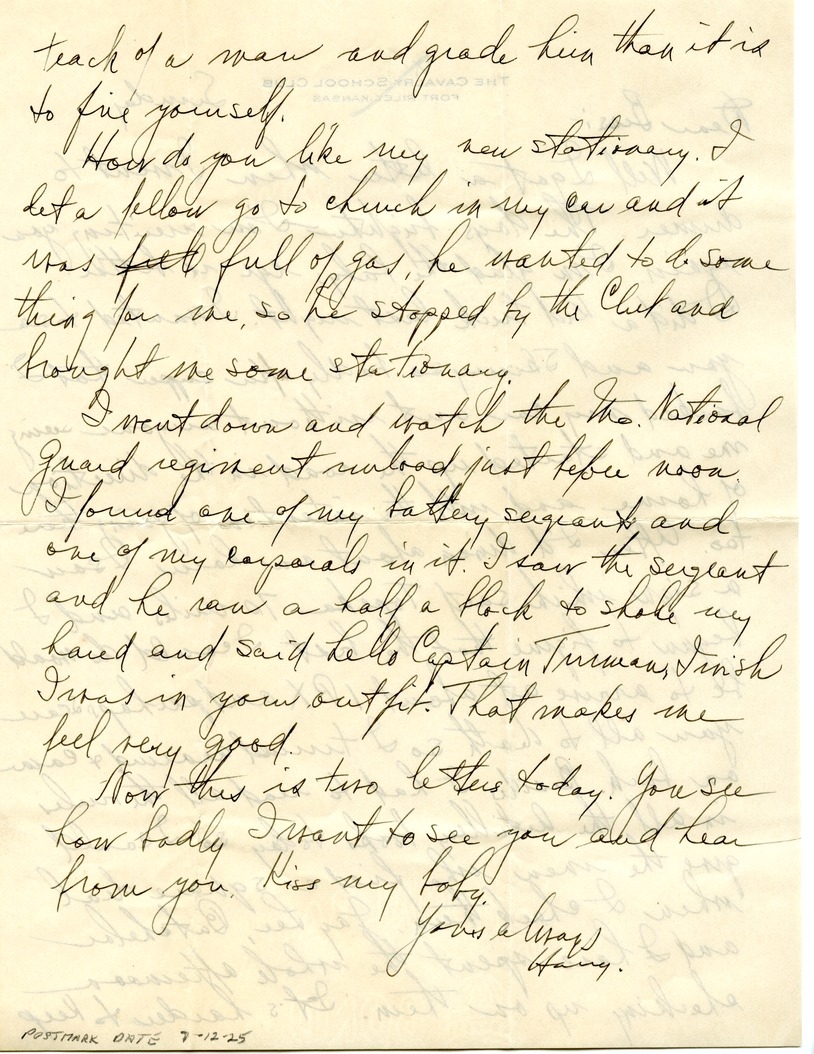 track of a man and grade him than it is
to fire yourself.
How do you like my new stationary. I
let a fellow go to church in my car and it
was full full of gas, he wanted to do some
thing for me, so he stopped by the Club and
brought me some stationary.
I went down and watch the Mo. National
Guard regiment unload just before noon.
I found one of my battery sergeants and
one of my corporals in it. I saw the sergeant
and he ran a half a block to shake my
hand and said hello Captain Truman, I wish
I was in your outfit. That makes me
feel very good.
Now this is two letters today. You see
how badly I want to see you and hear
from you. Kiss my baby.
Yours always
Harry.
POSTMARK DATE 7-12-25